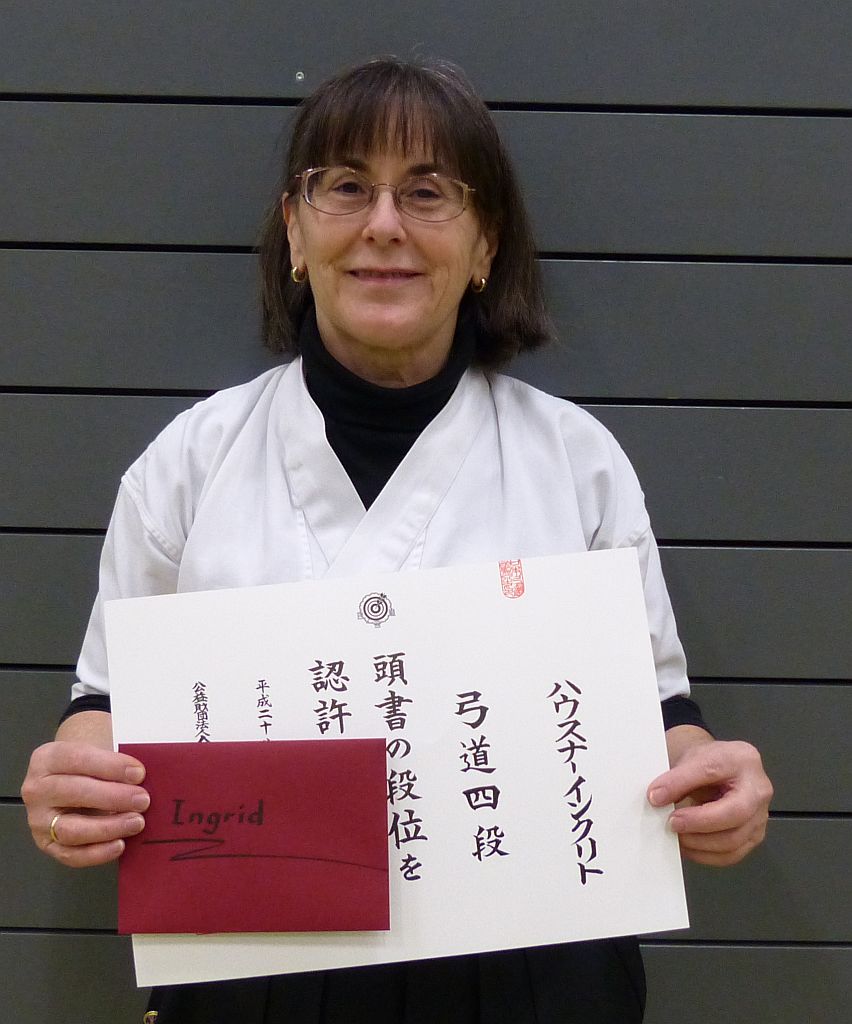 ハウスナーイングリト
弓道四段
頭書の段位を
認許
平成二十
公益財団法人
Ingrid